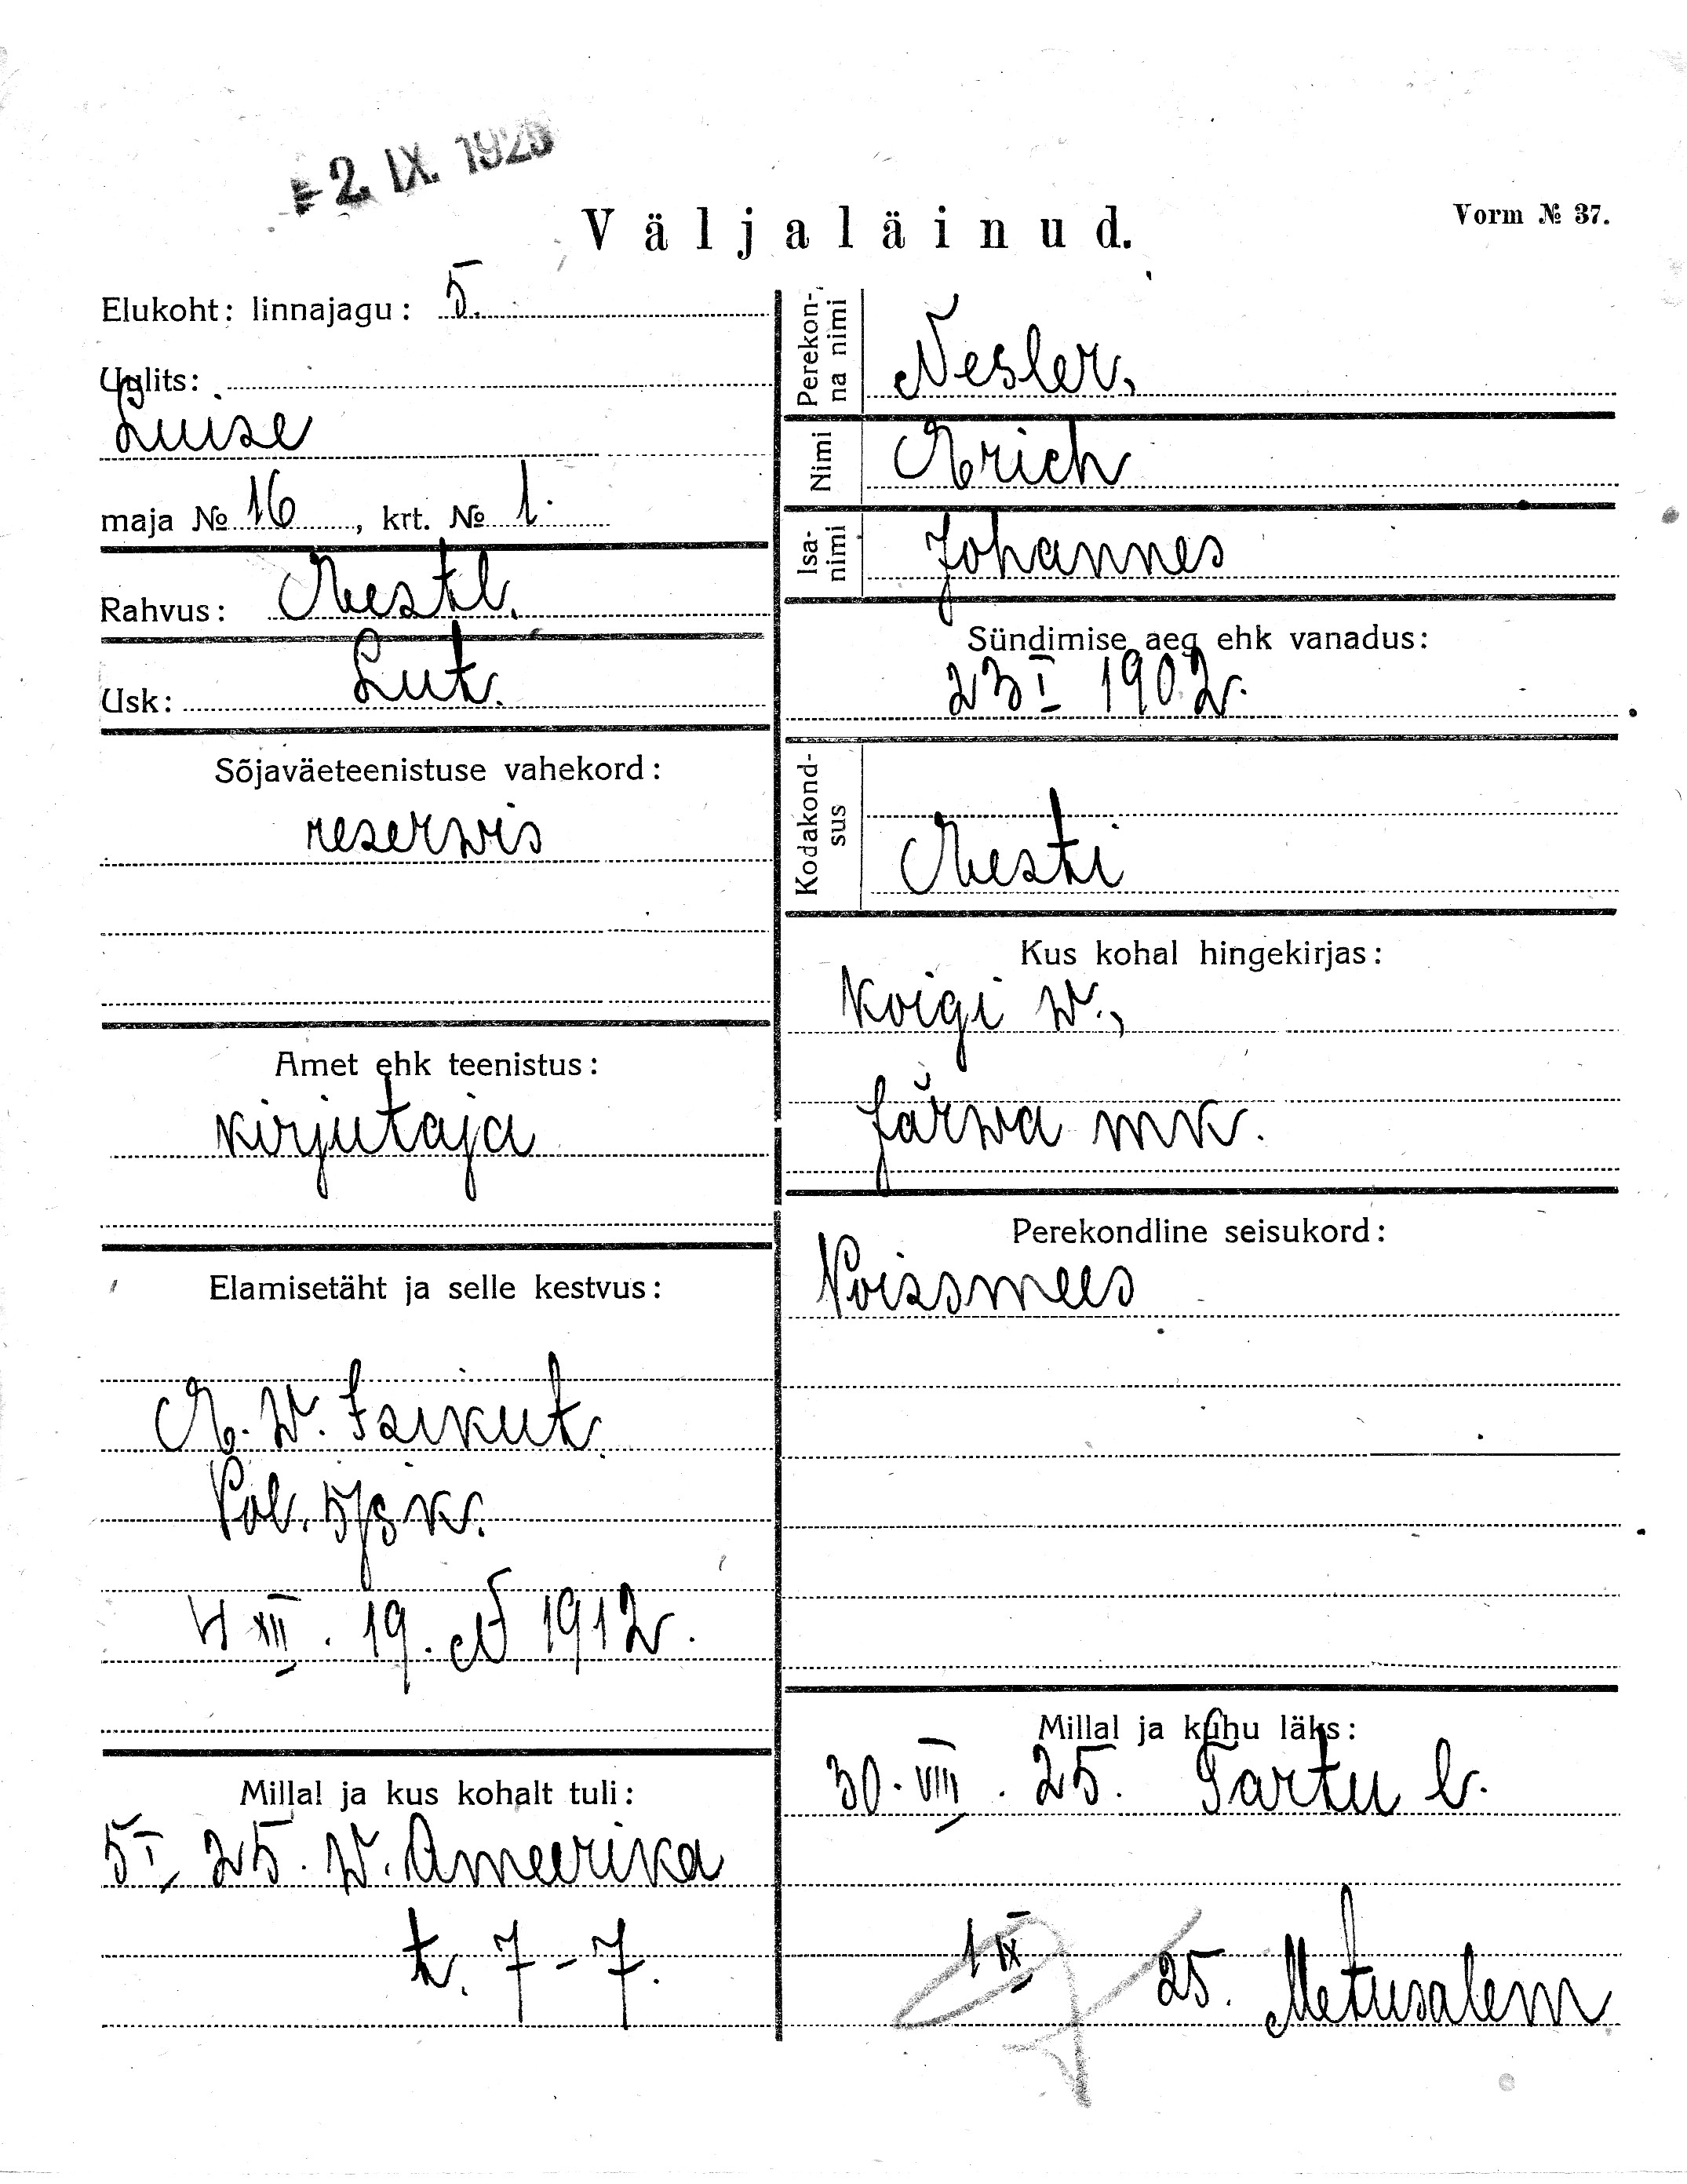 - 2. IX. 1925
Väljaläinud.
Vorm № 37.
Elukoht: linnajagu: 5.
Uulits:
Luise
maja № 16, krt. № 1.
Rahvus: Eestl.
Usk: Lut.
Sõjaväeteenistuse vahekord:
reserwis
Amet ehk teenistus:
kirjutaja
Elamisetäht ja selle kestvus:
E. W. Isikut.
Pol. 5/jsk.
4 XII. 19. № 1912.
Millal ja kus kohalt tuli:
5 I 25. W. Ameerika
t. 7-7.
Perekonna nimi
Nesler,
Nimi
Erich
Isanimi
Johannes
Sündimise aeg ehk vanadus:
23 I 1902.
Kodakondsus
Eesti
Kus kohal hingekirjas:
Koigi w.,
Järwa mk.
Perekondline seisukord:
Poissmees
Millal ja kuhu läks:
30. VIII. 25. Tartu l.
1 IX 25. Metusalem